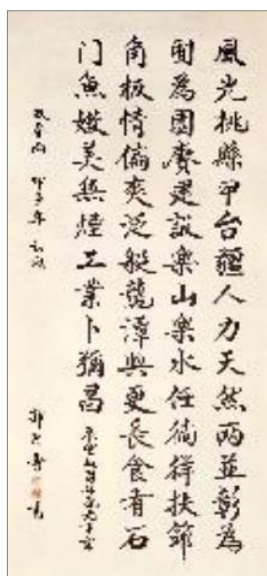 風光桃縣甲台疆人力天然兩並彰為
囿為園賡建設樂山樂水任徜徉扶筇
角板情偏爽泛艇龍潭興更長食有石
门魚嫩美無煙工業卜彌昌
甲子年初秋